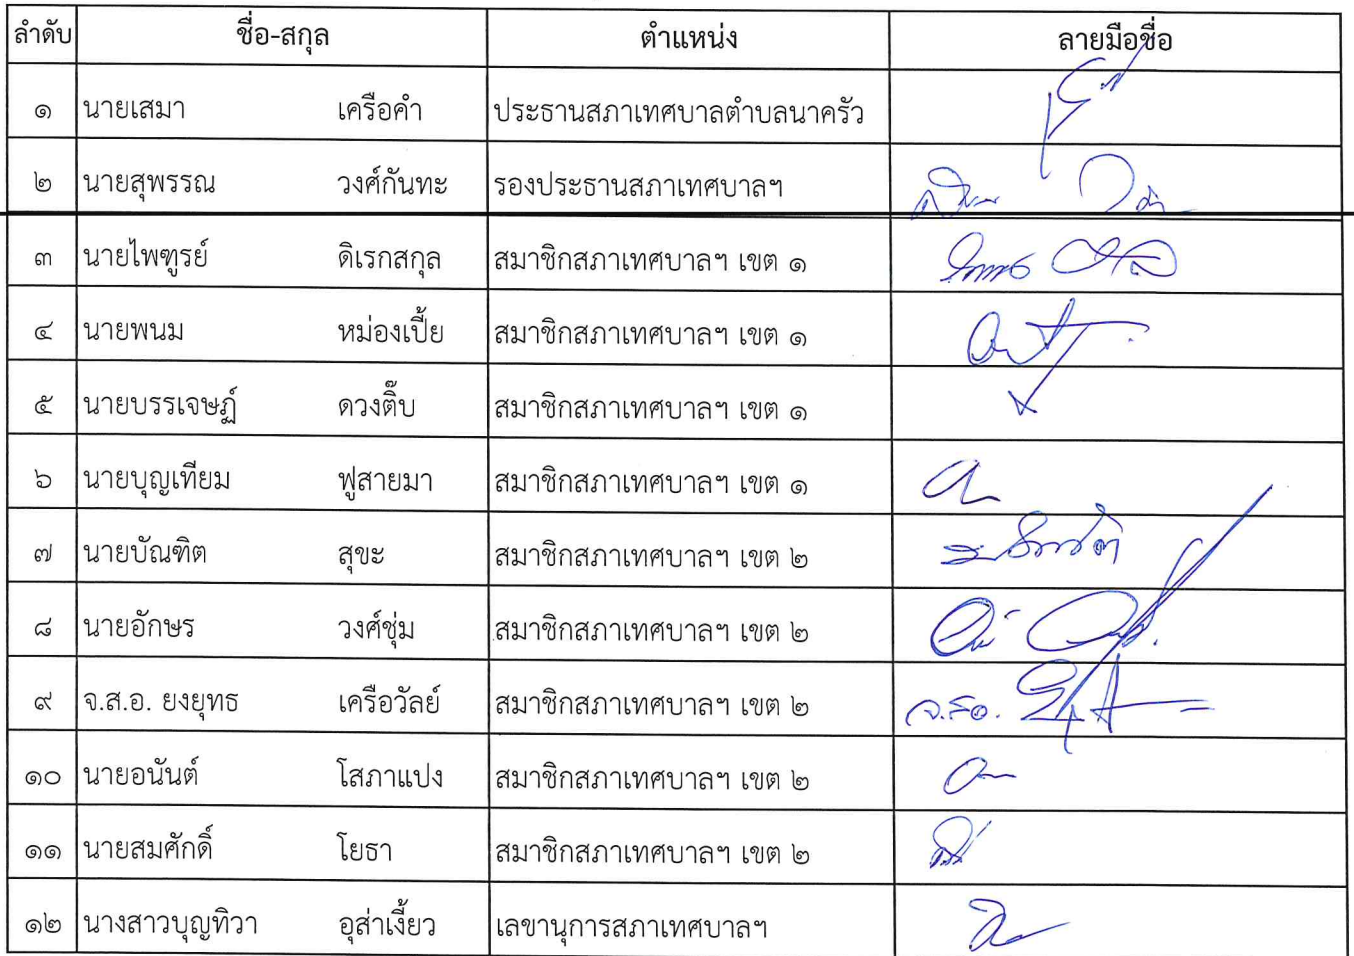 ลำดับ ชื่อ-สกุล ตำแหน่ง ลายมือชื่อ
๑ นายเสมา เครือคำ ประธานสภาเทศบาลตำบลนาครัว
๒ นายสุพรรณ วงศ์กันทะ รองประธานสภาเทศบาลฯ
๓ นายไพฑูรย์ ดิเรกสกุล สมาชิกสภาเทศบาลฯ เขต ๑
๔ นายพนม หม่องเปี้ย สมาชิกสภาเทศบาลฯ เขต ๑
๕ นายบรรเจษฏ์ ดวงติ๊บ สมาชิกสภาเทศบาลฯ เขต ๑
๖ นายบุญเทียม ฟูสายมา สมาชิกสภาเทศบาลฯ เขต ๑
๗ นายบัณฑิต สุขะ สมาชิกสภาเทศบาลฯ เขต ๒
๘ นายอักษร วงศ์ชุ่ม สมาชิกสภาเทศบาลฯ เขต ๒
๙ จ.ส.อ. ยงยุทธ เครือวัลย์ สมาชิกสภาเทศบาลฯ เขต ๒ จ.ส.อ.
๑๐ นายอนันต์ โสภาแปง สมาชิกสภาเทศบาลฯ เขต ๒
๑๑ นายสมศักดิ์ โยธา สมาชิกสภาเทศบาลฯ เขต ๒
๑๒ นางสาวบุญทิวา อุส่าเงี้ยว เลขานุการสภาเทศบาลฯ